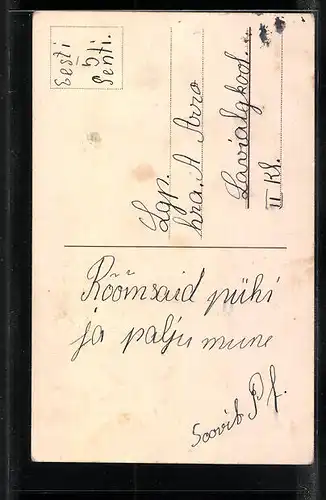 Eesti
5
Senti.
Lgp.
hra. A Arro
Lavialgkool.
II Kl.
Rõõmsaid pühi
ja palju mune
Soovib P f.